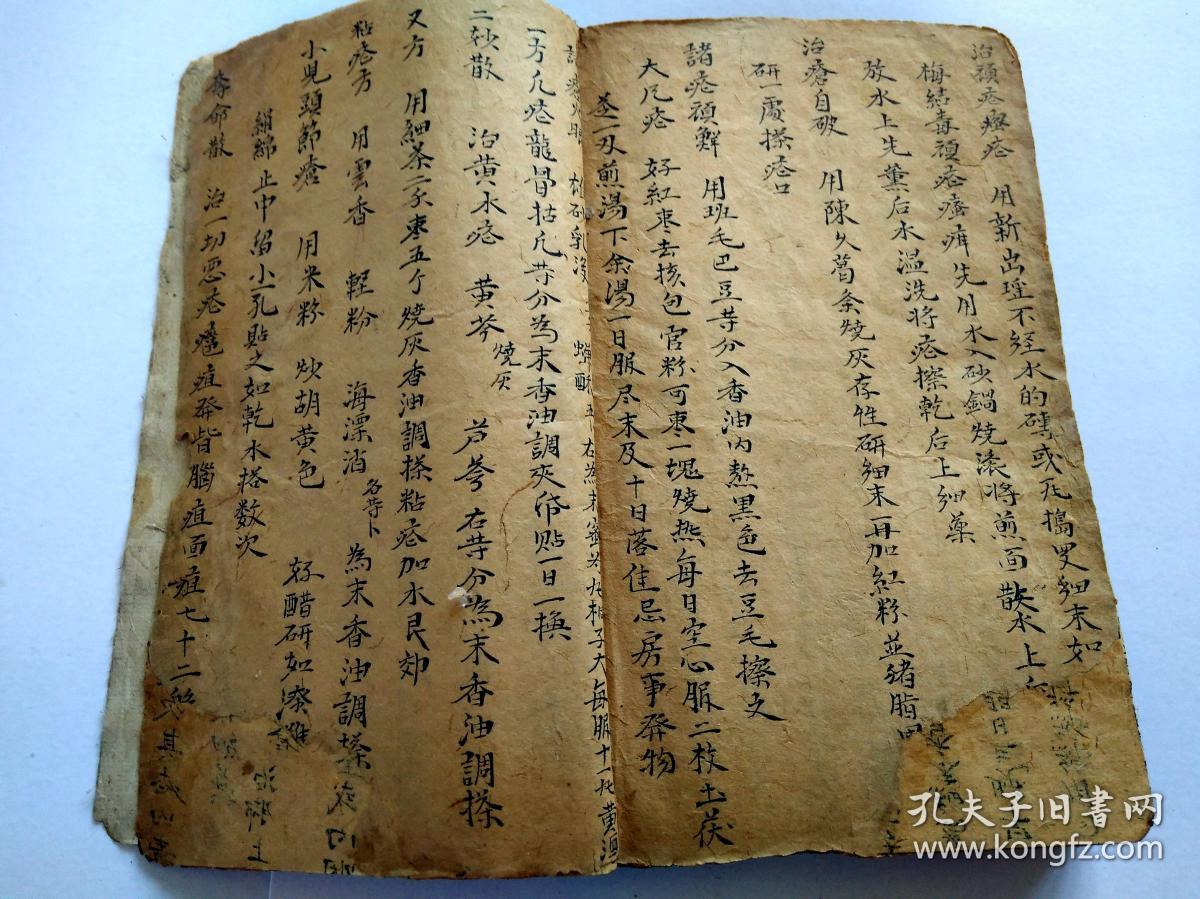 治頑疮癢疮 用新出瑆不经水的磚或瓦搗罗细末如
梅結毒頑疮瘙痒先用水入砂鍋燒滚将煎面散水上
放水上先薰后水温洗将疮擦乾后上细藥
治瘡自破 用陳久葛条燒灰存性研细末再加紅粉並豬脂
研一處搽疮口
諸疮頑鮮 用班毛巴豆等分入香油内熬黑色去豆毛擦之
大凡疮 好紅枣去核包官粉可枣一塊燒热每日空心服二枚土茯
苓一刄煎湯下余湯一日服尽末及十日落佳忌房事發物
雄砂乳没 右為末蜜为丸桐子大每服十一丸黄酒
一方凡疮龍骨枯凡等分為末香油調夾帋贴一日一換
二妙散 治黄水疮 黄芩燒灰 芦苓右等分為末香油調搽
又方 用細茶二子枣五个燒灰香油調搽粘疮加水艮
粘疮方 用雲香 軽粉 海漂消各等卜 為末香油調搽
小児頭節瘡 用米粉 炒胡黄色 好醋研如漆
絹綿 止中留小一孔貼之如乾水搭数次
奪命散 治一切恶疮 疽發背腦疽面疽七十二般其疮
孔夫子旧書网
www.kongfz.com